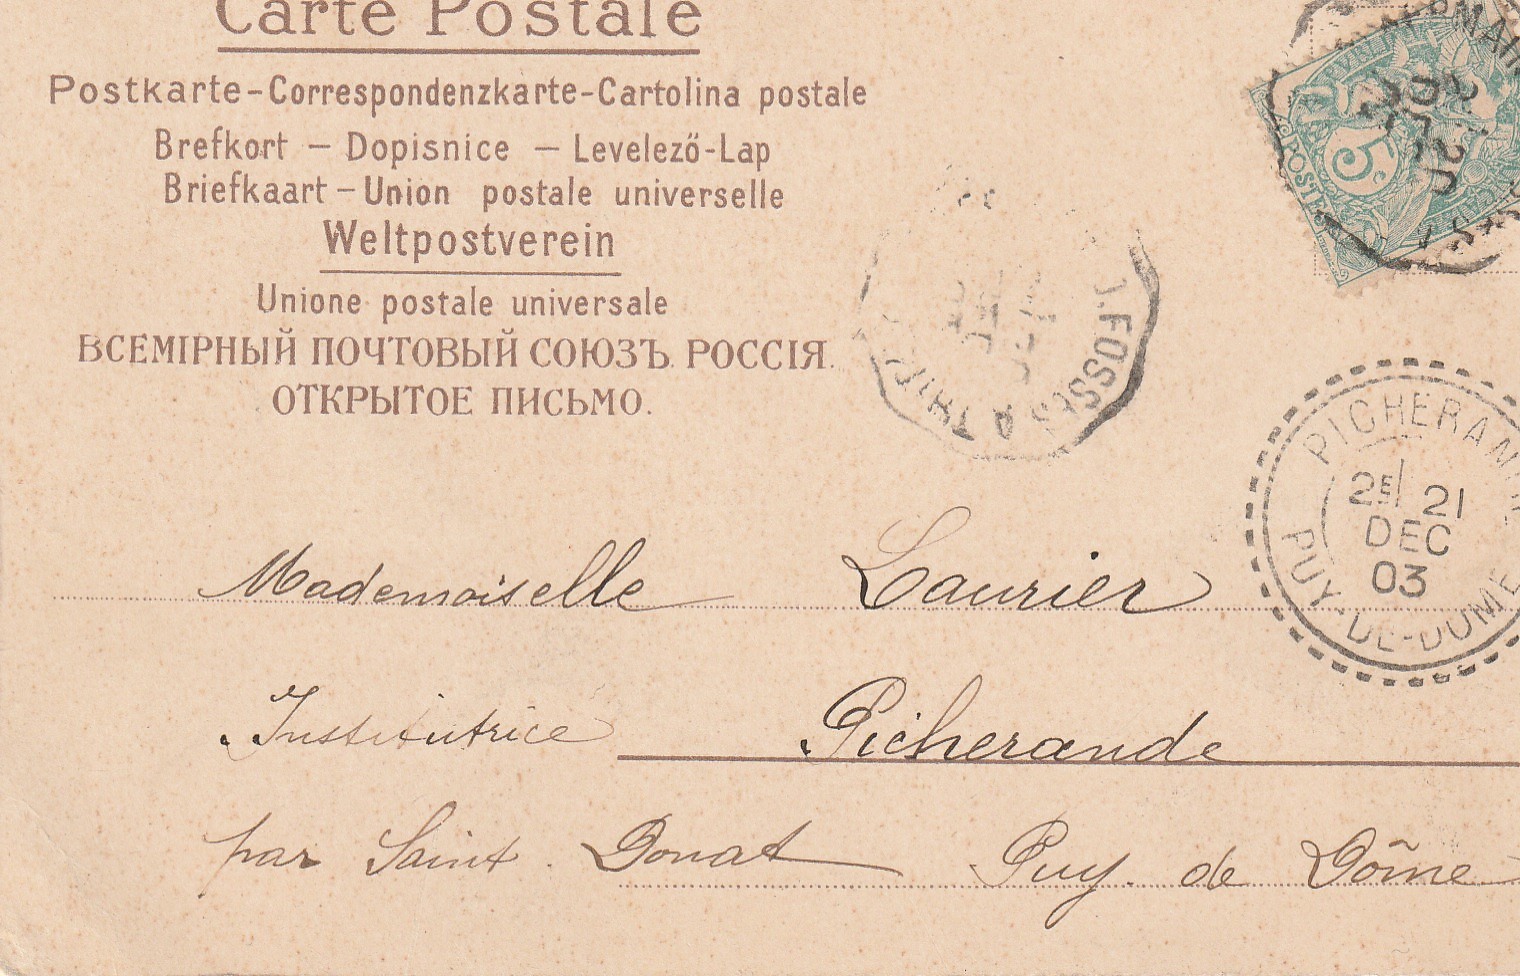 Carte Postale
Postkarte-Correspondenzkarte-Cartolina postale
Brefkort – Dopisnice – Levelező-Lap
Briefkaart – Union postale universelle
Weltpostverein
Unione postale universale
ВСЕМІРНЫЙ ПОЧТОВЫЙ СОЮЗЪ. РОССІЯ.
ОТКРЫТОЕ ПИСЬМО.
5
POSTE
FOSSES A
PICHERAN
2E 21
DEC
03
PUY-DE-DOME
Mademoiselle Laurier
Institutrice Picherande
par Saint Donat Puy de Dôme